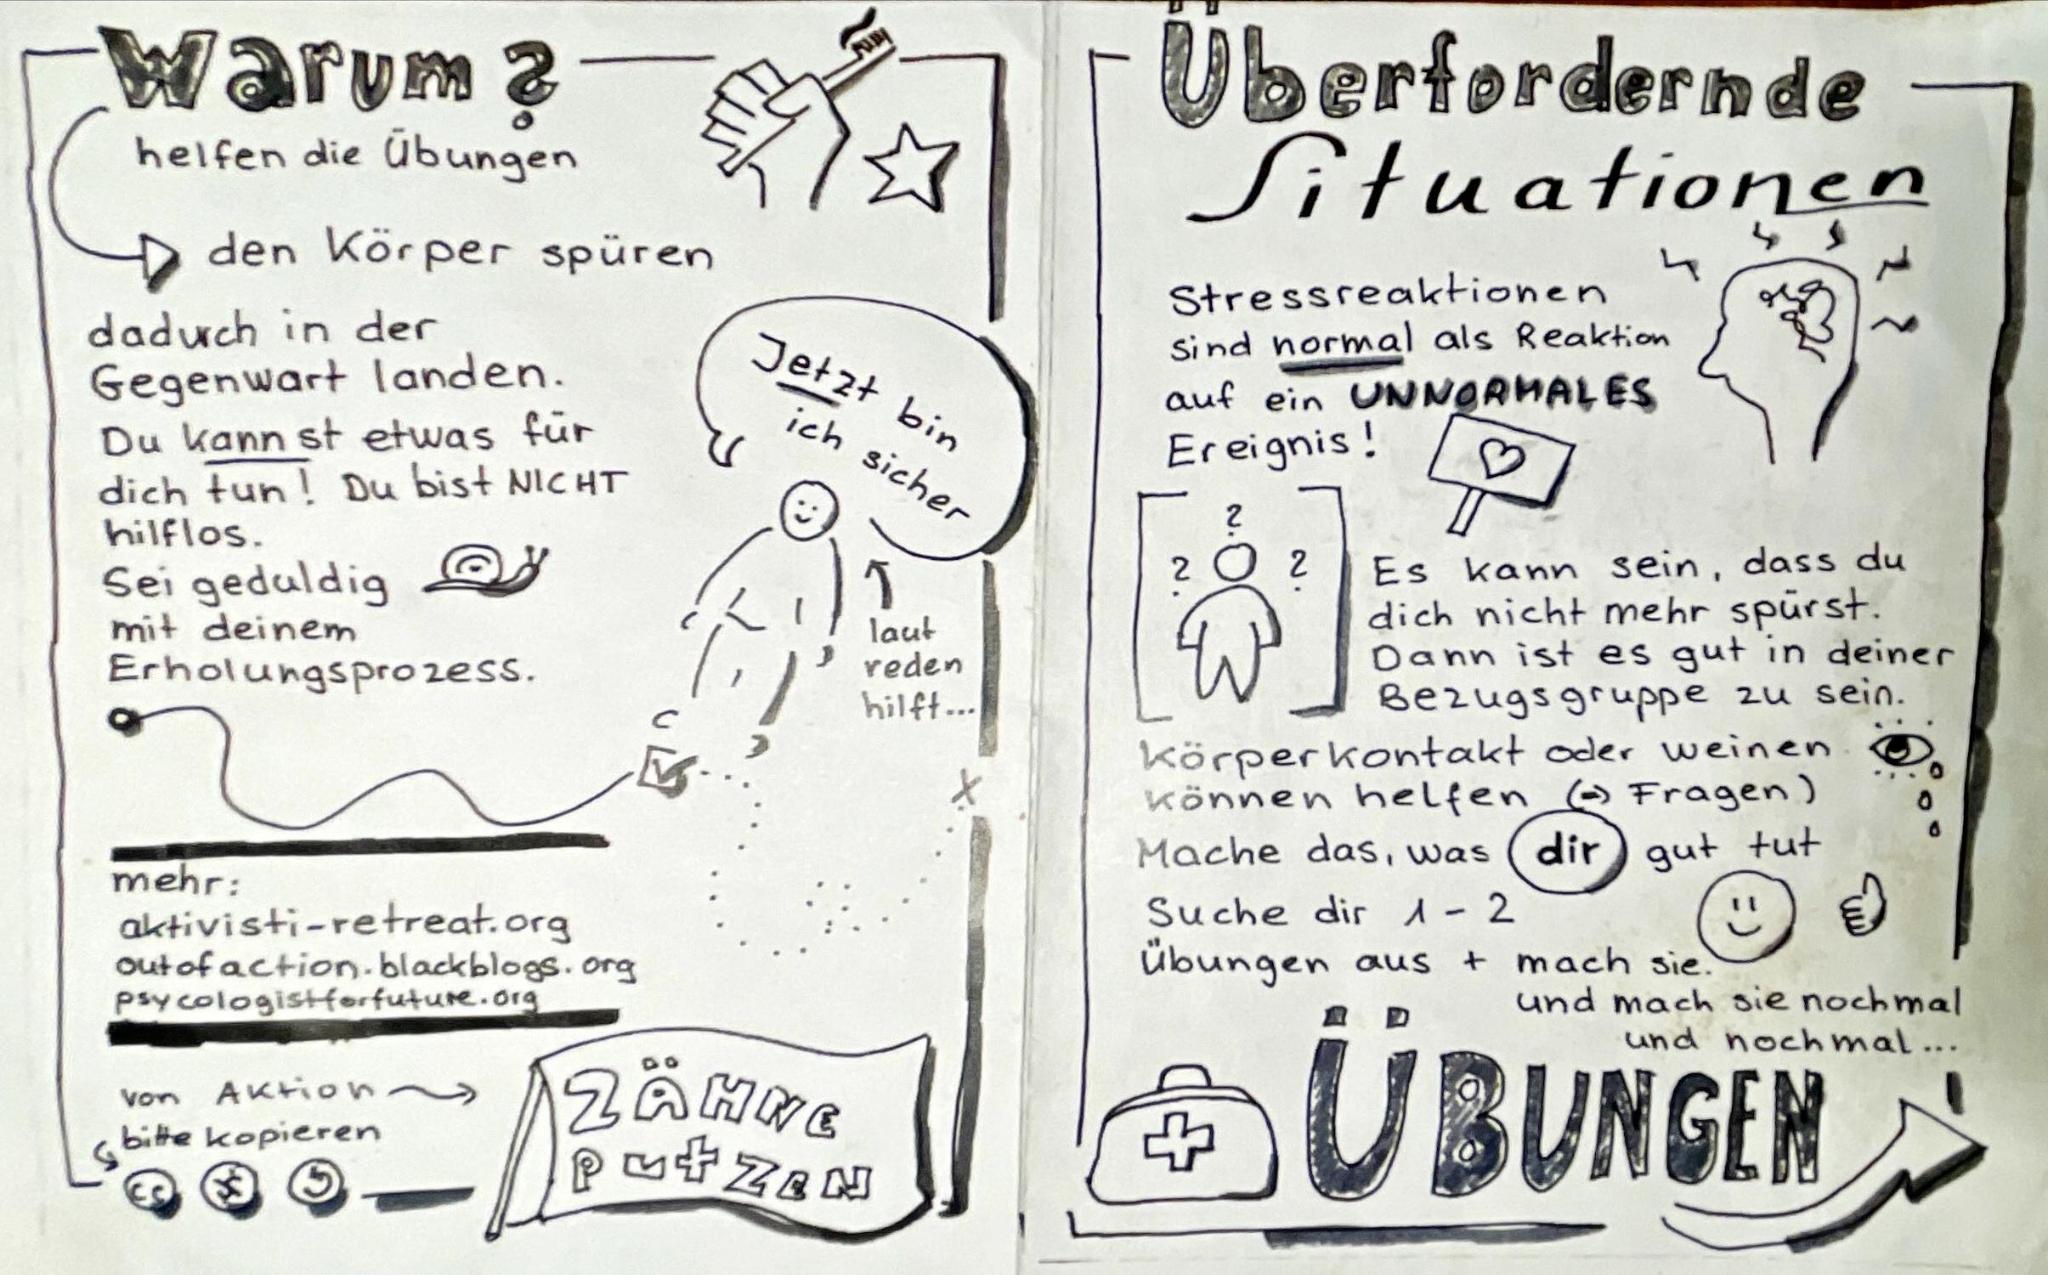 Warum?
helfen die Übungen
den Körper spüren
dadurch in der
Gegenwart landen.
Du kannst etwas für
dich tun! Du bist NICHT
hilflos.
Sei geduldig
mit deinem
Erholungsprozess.
Jetzt bin
ich sicher
laut
reden
hilft...
mehr:
aktivisti-retreat.org
outofaction.blackblogs.org
psycologistforfuture.org
von Aktion
bitte kopieren
cc $
ZÄHNE
PUTZEN
Überfordernde
Situationen
Stressreaktionen
sind normal als Reaktion
auf ein UNNORMALES
Ereignis!
?
? ?
Es kann sein, dass du
dich nicht mehr spürst.
Dann ist es gut in deiner
Bezugsgruppe zu sein.
Körperkontakt oder weinen
können helfen (⇒ Fragen)
Mache das, was dir gut tut
Suche dir 1-2
Übungen aus + mach sie.
und mach sie nochmal
und nochmal...
ÜBUNGEN